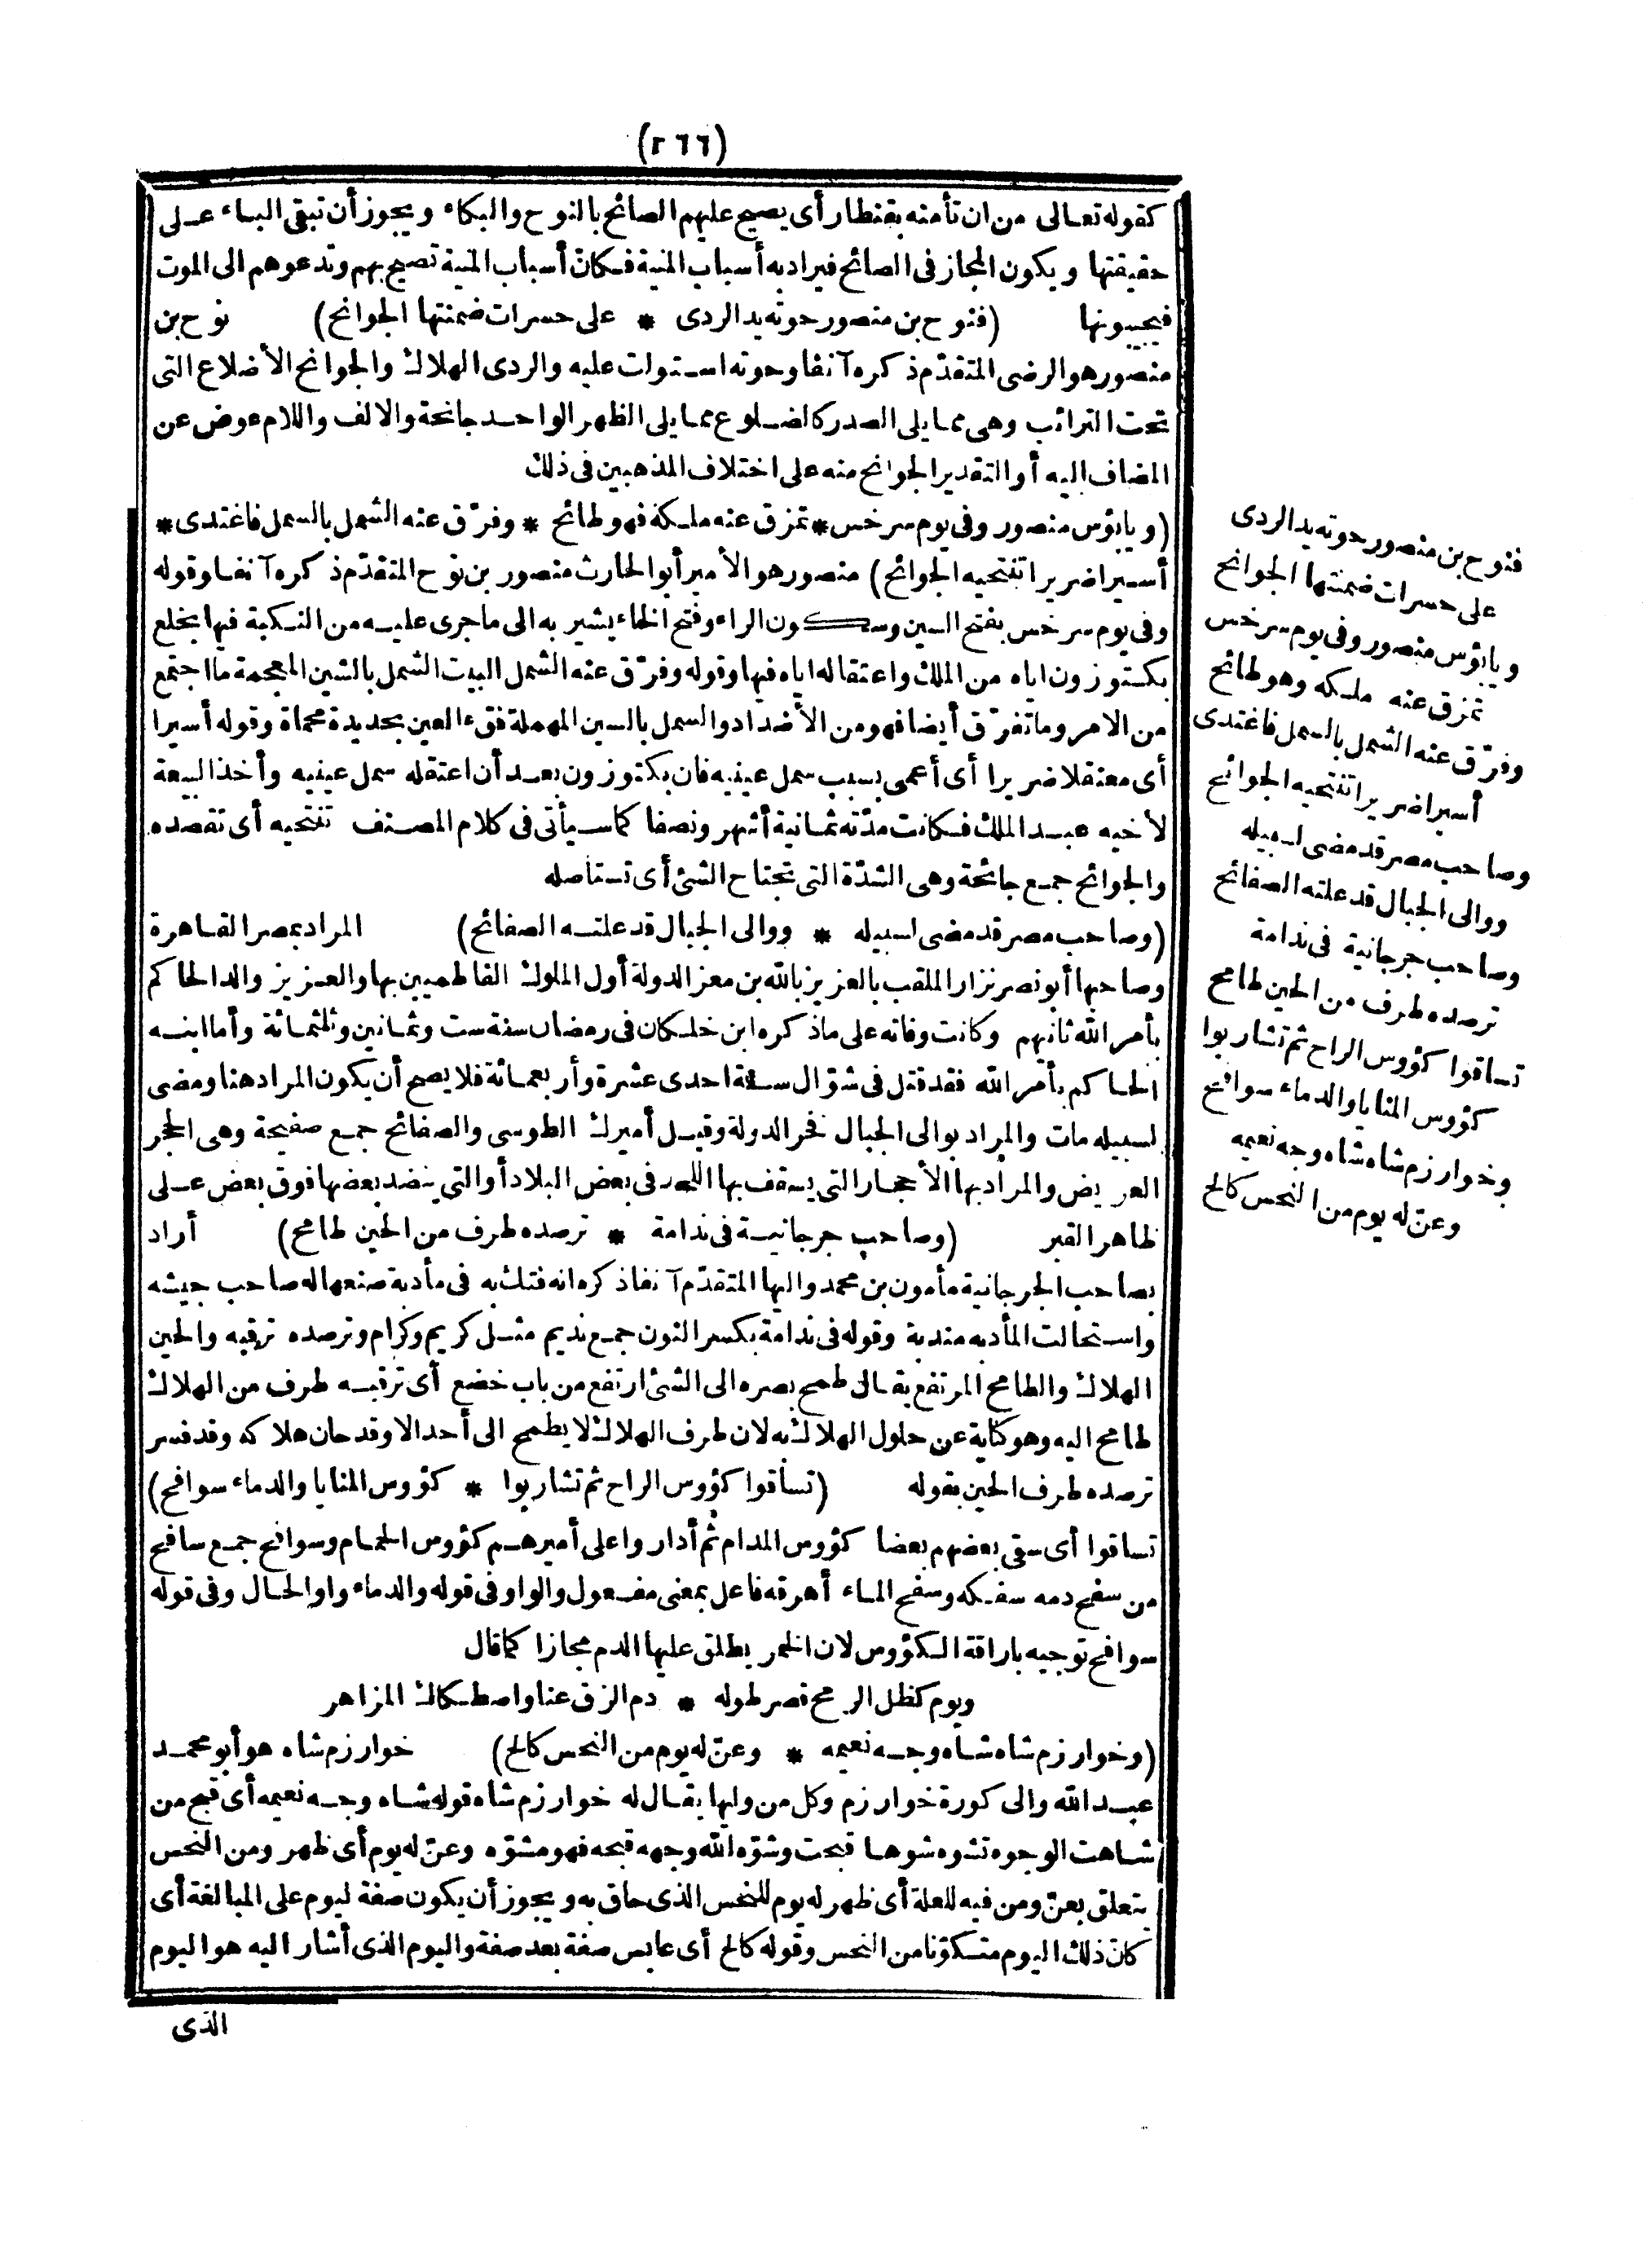 (٢٦٦)
كقوله تعالى من ان تأمنه بقنطار أى يصيح عليهم الصائح بالنوح والبكاء ويجوز أن تبقى الباء على
حقيقتها ويكون المجاز فى الصائح فيراد به أسباب المنية فكانّ أسباب المنية تصيح بهم وتدعوهم الى الموت
فيجيبونها (فنوح بن منصور حوته يد الردى * على حسرات ضمنتها الجوانح) نوح بن
منصور هو الرضى المتقدّم ذكره آنفا وحوته استولت عليه والردى الهلاك والجوانح الأضلاع التى
تحت الترائب وهى مما يلى الصدر كالضلوع مما يلى الظهر الواحد جانحة والالف واللام عوض عن
المضاف اليه أو التقدير الجوانح منه على اختلاف المذهبين فى ذلك
(ويا بؤس منصور وفى يوم سرخس * تمزق عنه ملكه فهو طائح * وفرّق عنه الشمل بالسمل فاغتدى *
أسيرا ضريرا تنتحيه الجوائح) منصور هو الأمير أبو الحارث منصور بن نوح المتقدّم ذكره آنفا وقوله
وفى يوم سرخس بفتح السين وسكون الراء وفتح الخاء يشير به الى ما جرى عليه من النكبة فيها بخلع
بكتوزون اياه من الملك واعتقاله اياه فيها وقوله وفرّق عنه الشمل البيت الشمل بالشين المعجمة ما اجتمع
من الامر وما تفرّق أيضا فهو من الأضداد والسمل بالسين المهملة فقء العين بحديدة محماة وقوله أسيرا
أى معتقلا ضريرا أى أعمى بسبب سمل عينيه فان بكتوزون بعد أن اعتقله سمل عينيه وأخذ البيعة
لأخيه عبد الملك فكانت مدّته ثمانية أشهر ونصفا كما سيأتى فى كلام المصنف تنتحيه أى تقصده
والجوائح جمع جائحة وهى الشدّة التى تجتاح الشئ أى تستأصله
(وصاحب مصر قد مضى لسبيله * ووالى الجبال قد علته الصفائح) المراد بمصر القاهرة
وصاحبها أبو نصر نزار الملقب بالعزيز بالله بن معز الدولة أول الملوك الفاطميين بها والعزيز والد الحاكم
بأمر الله ثانيهم وكانت وفاته على ماذكره ابن خلكان فى رمضان سنة ست وثمانين وثلثمائة وأما ابنه
الحاكم بأمر الله فقد قتل فى شوّال سنة احدى عشرة وأربعمائة فلا يصح أن يكون المراد هنا ومضى
لسبيله مات والمراد بوالى الجبال فخر الدولة وقيل أميرك الطوسى والصفائح جمع صفيحة وهى الحجر
العريض والمراد بها الأحجار التى يسقف بها اللحد فى بعض البلاد أو التى ينضد بعضها فوق بعض على
ظاهر القبر (وصاحب جرجانية فى ندامة * ترصده طرف من الحين طامح) أراد
بصاحب الجرجانية مأمون بن محمد واليها المتقدّم آنفا ذكره انه فتك به فى مأدبة صنعها له صاحب جيشه
واستحالت المأدبه مندبة وقوله فى ندامة بكسر النون جمع نديم مثل كريم وكرام وترصده ترقبه والحين
الهلاك والطامح المرتفع يقال طمح بصره الى الشئ ارتفع من باب خضع أى ترقبه طرف من الهلاك
طامح اليه وهو كناية عن حلول الهلاك به لان طرف الهلاك لا يطمح الى أحد الا وقد حان هلاكه وقد فسر
ترصده طرف الحين بقوله (تساقوا كؤوس الراح ثم تشاربوا * كؤوس المنايا والدماء سوافح)
تساقوا أى سقى بعضهم بعضا كؤوس المدام ثم أداروا على أميرهم كؤوس الحمام وسوافح جمع سافح
من سفح دمه سفكه وسفح الماء أهرقه فاعل بمعنى مفعول والواو فى قوله والدماء واو الحال وفى قوله
سوافح توجيه باراقة الكؤوس لان الخمر يطلق عليها الدم مجازا كما قال
ويوم كظل الرمح قصر طوله * دم الزق عنا واصطكاك المزاهر
(وخوارزم شاه شاه وجه نعيمه * وعنّ له يوم من النحس كالح) خوارزم شاه هو أبو محمد
عبد الله والى كورة خوارزم وكل من وليها يقال له خوارزم شاه قوله شاه وجه نعيمه أى قبح من
شاهت الوجوه تشوه شوها قبحت وشوّه الله وجهه قبحه فهو مشوّه وعنّ له يوم أى ظهر ومن النحس
يتعلق بعنّ ومن فيه للعلة أى ظهر له يوم للنحس الذى حاق به ويجوز أن يكون صفة ليوم على المبالغة أى
كانّ ذلك اليوم متكوّنا من النحس وقوله كالح أى عابس صفة بعد صفة واليوم الذى أشار اليه هو اليوم
الذى
فنوح بن منصور حوته يد الردى
على حسرات ضمنتها الجوانح
ويا بؤس منصور وفى يوم سرخس
تمزق عنه ملكه وهو طائح
وفرّق عنه الشمل بالسمل فاغتدى
أسيرا ضريرا تنتحيه الجوائح
وصاحب مصر قد مضى لسبيله
ووالى الجبال قد علته الصفائح
وصاحب جرجانية فى ندامة
ترصده طرف من الحين طامح
تساقوا كؤوس الراح ثم تشاربوا
كؤوس المنايا والدماء سوافح
وخوارزم شاه شاه وجه نعيمه
وعنّ له يوم من النحس كالح